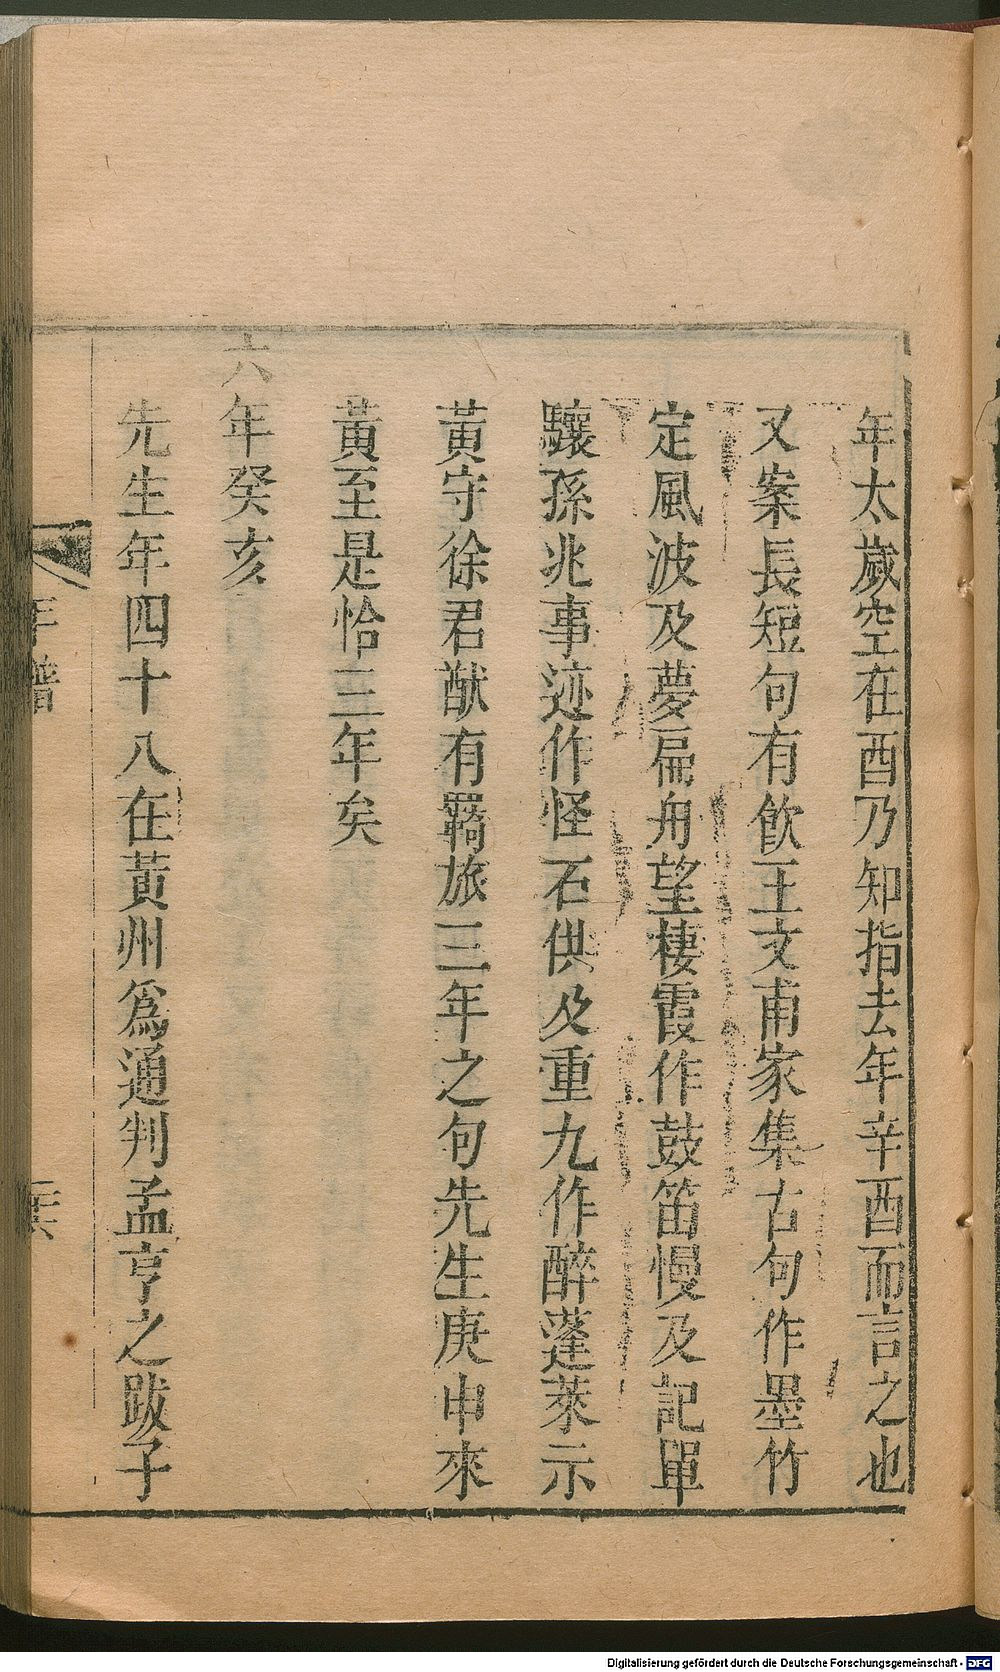 年太歲空在酉乃知指去年辛酉而言之也
又案長短句有飲王文甫家集古句作墨竹
定風波及夢扁舟望棲霞作鼓笛慢及記單
驤孫兆事迹作怪石供及重九作醉蓬萊示
黃守徐君猷有羇旅三年之句先生庚申來
黃至是恰三年矣
六年癸亥
先生年四十八在黃州爲通判孟亨之跋子
年譜
Digitalisierung gefördert durch die Deutsche Forschungsgemeinschaft - DFG